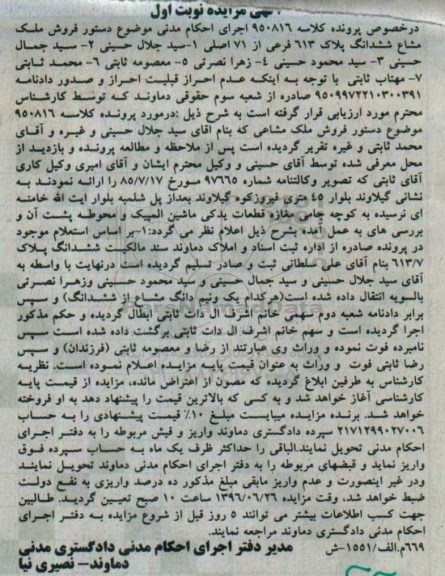 آگهی مزایده نوبت اول
درخصوص پرونده کلاسه ۹۵۰۸۱۶ اجرای احکام مدنی موضوع دستور فروش ملک
مشاع ششدانگ پلاک ۶۱۳ فرعی از ۷۱ اصلی ۱-سید جلال حسینی ۲- سید جمال
حسینی ۳- سید محمود حسینی ۴- زهرا نصرتی ۵- معصومه ثابتی ۶- محمد ثابتی
۷- مهتاب ثابتی با توجه به اینکه عدم احراز قبلیت احراز و صدور دادنامه
۹۵۰۹۹۷۲۲۱۰۳۰۰۳۹۱ صادره از شعبه سوم حقوقی دماوند که توسط کارشناس
محترم مورد ارزیابی قرار گرفته است به شرح ذیل :درمورد پرونده کلاسه ۹۵۰۸۱۶
موضوع دستور فروش ملک مشاعی که بنام اقای سید جلال حسینی و غیره و آقای
محمد ثابتی و غیره تقریر گردیده است پس از ملاحظه و مطالعه پرونده و بازدید از
محل معرفی شده توسط آقای حسینی و وکیل محترم ایشان و آقای امیری وکیل کاری
آقای ثابتی که تصویر وکالتنامه شماره ۹۷۶۶۵ مورخ ۸۵/۷/۱۷ را ارائه نمودند به
نشانی گیلاوند بلوار ۴۵ متری فیروزکوه گیلاوند بعداز پل شلمبه بلوار ایت الله خامنه
ای نرسیده به کوچه جامی مغازه قطعات یدکی ماشین المپیک و محوطه پشت آن و
بررسی های به عمل آمده بشرح ذیل اعلام نظر می گردد:۱-بر اساس استعلام موجود
در پرونده صادره از اداره ثبت اسناد و املاک دماوند سند مالکیت ششدانگ پلاک
۶۱۳/۷ بنام آقای علی سلطانی ثبت و صادر تسلیم گردیده است درنهایت با واسطه به
آقای سید جلال حسینی و سید جمال حسینی و سید محمود حسینی وزهرا نصرتی
بالسویه انتقال داده شده است(هرکدام یک ونیم دانگ مشاع از ششدانگ) و سپس
برابر دادنامه شعبه دوم سهمی خانم اشرف ال دات ثابتی ابطال گردیده و حکم مذکور
اجرا گردیده است و سهم خانم اشرف ال دات ثابتی برگشت داده شده است سپس
نامبرده فوت نموده و وراث وی عبارتند از رضا و معصومه ثابتی (فرزندان) و سپس
رضا ثابتی فوت و وراث به عنوان قیمت پایه مزایده اعلام نموده است. نظریه
کارشناس به طرفین ابلاغ گردیده که مصون از اعتراض مانده، مزایده از قیمت پایه
کارشناسی آغاز خواهد شد و به کسی که بالاترین قیمت را پیشنهاد دهد به او فروخته
خواهد شد. برنده مزایده میبایست مبلغ ۱۰٪ قیمت پیشنهادی را به حساب
۲۱۷۱۲۹۹۰۲۷۰۰۶ سپرده دادگستری دماوند واریز و فیش مربوطه را به دفتر اجرای
احکام مدنی تحویل نمایند.الباقی را حداکثر ظرف یک ماه به حساب سپرده فوق
واریز نماید و قبضهای مربوطه را به دفتر اجرای احکام مدنی دماوند تحویل نمایند
ودر غیر اینصورت و عدم واریز مابقی مبلغ مذکور ده درصد واریزی به نفع دولت
ضبط خواهد شد، وقت مزایده ۱۳۹۶/۰۶/۲۶ ساعت ۱۰ صبح تعیین گردید. طالبین
جهت کسب اطلاعات بیشتر می توانند ۵ روز قبل از شروع مزایده به دفتر اجرای
احکام مدنی دادگستری دماوند مراجعه نمایند.
۶۶۹م.الف/۱۵۵۱-ش مدیر دفتر اجرای احکام مدنی دادگستری مدنی
دماوند- نصیری نیا